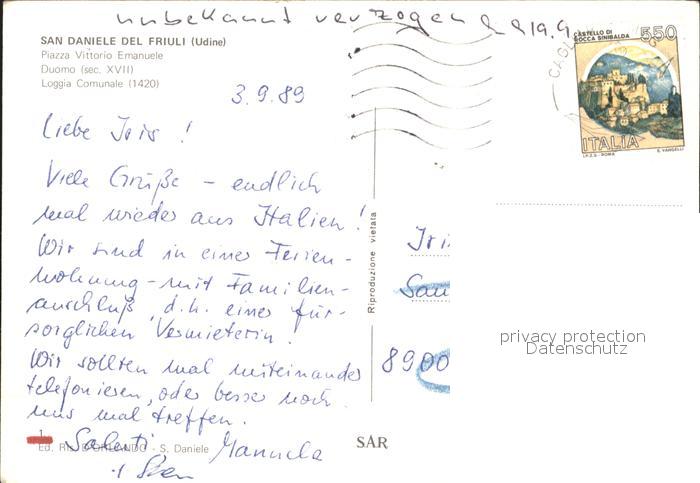 unbekannt verzogen 2 19.9.
SAN DANIELE DEL FRIULI (Udine)
Piazza Vittorio Emanuele
Duomo (sec. XVII)
Loggia Comunale (1420)
3.9.89
Liebe Iris!
Viele Grüße - endlich
mal wieder aus Italien!
Wir sind in einer Ferien-
wohnung - mit Familien-
anschluß, d.h. einer für-
sorglichen Vermieterin.
Wir sollten mal miteinander
telefonieren, oder besser noch
uns mal treffen.
Saluti Manuela
+ Sven
Ed. Ris. D'ORLANDO - S. Daniele
SAR
Riproduzione vietata
CASTELLO DI
ROCCA SINIBALDA
550
ITALIA
I.P.Z.S. - ROMA
E. VANGELLI
CAGL
Iri
San
8900
privacy protection
Datenschutz